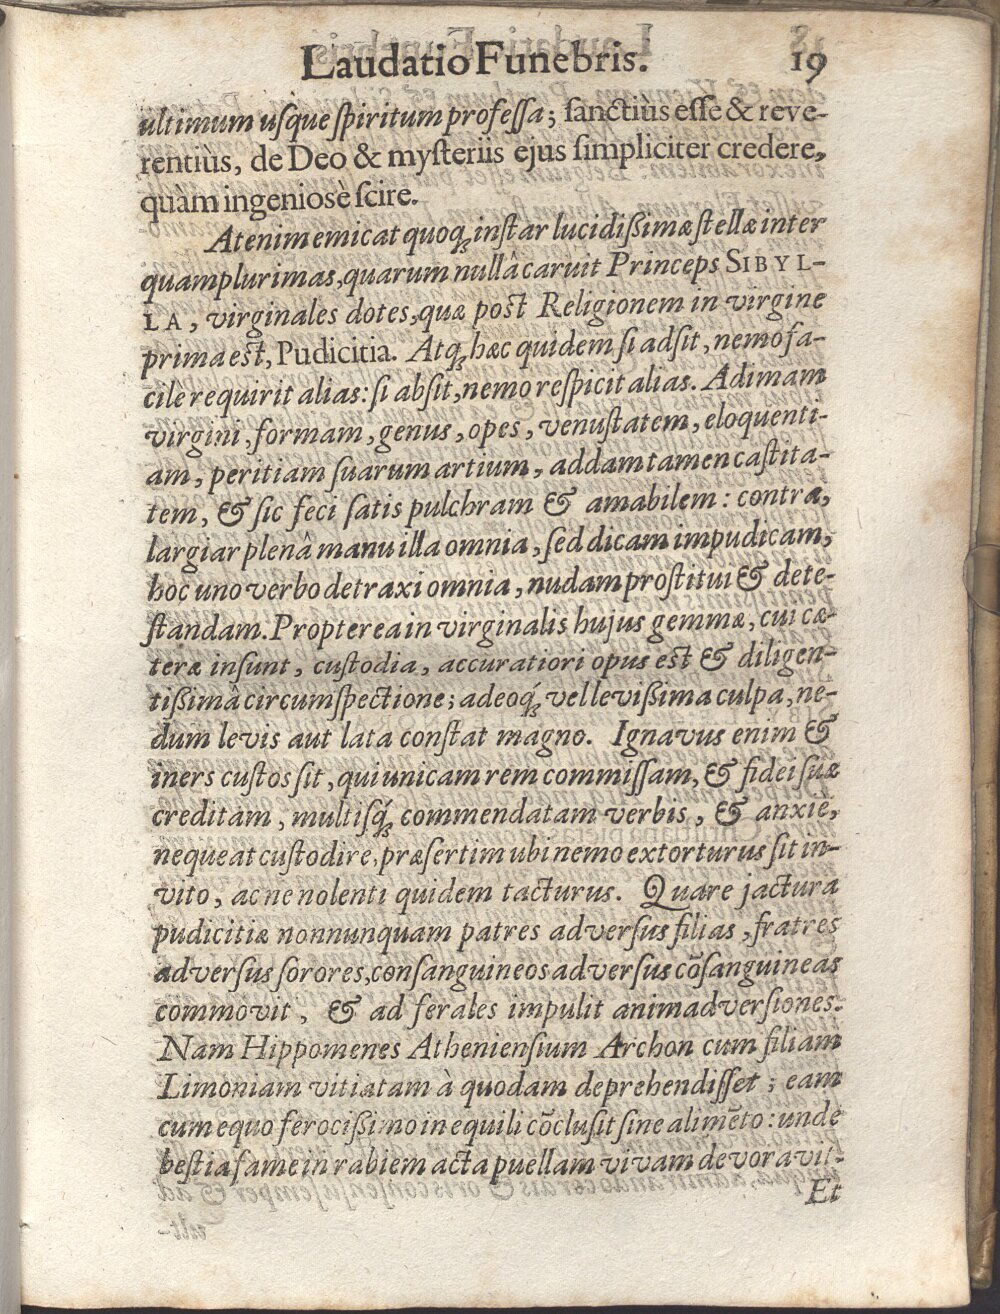 Laudatio Funebris. 19
ultimum usque spiritum professa; sanctiùs esse & reve-
rentiùs, de Deo & mysteriis ejus simpliciter credere,
quàm ingeniosè scire.
Atenim emicat quoq, instar lucidißimæ stellæ inter
quamplurimas, quarum nullâ caruit Princeps SIBYL-
LA, virginales dotes, quæ post Religionem in virgine
prima est, Pudicitia. Atq, hæc quidem si adsit, nemo fa-
cile requirit alias: si absit, nemo respicit alias. Adimam
virgini, formam, genus, opes, venustatem, eloquenti-
am, peritiam suarum artium, addam tamen castita-
tem, & sic feci satis pulchram & amabilem: contrà,
largiar plenâ manu illa omnia, sed dicam impudicam,
hoc uno verbo detraxi omnia, nudam prostitui & dete-
standam. Propterea in virginalis hujus gemmæ, cui cæ-
teræ insunt, custodia, accuratiori opus est & diligen-
tißimâ circumspectione; adeoq́, vel levißima culpa, ne-
dum levis aut lata constat magno. Ignavus enim &
iners custos sit, qui unicam rem commissam, & fidei suæ
creditam, multisq́, commendatam verbis, & anxie,
nequeat custodire, præsertim ubi nemo extorturus sit in-
vito, ac ne nolenti quidem tacturus. Quare jactura
pudicitiæ nonnunquam patres adversus filias, fratres
adversus sorores, consanguineos adversus cõsanguineas
commovit, & ad ferales impulit animadversiones.
Nam Hippomenes Atheniensium Archon cum filiam
Limoniam vitiatam à quodam deprehendisset; eam
cum equo ferocißimo in equili cõclusit sine alimẽto: unde
bestia fame in rabiem acta puellam vivam devoravit.
Et